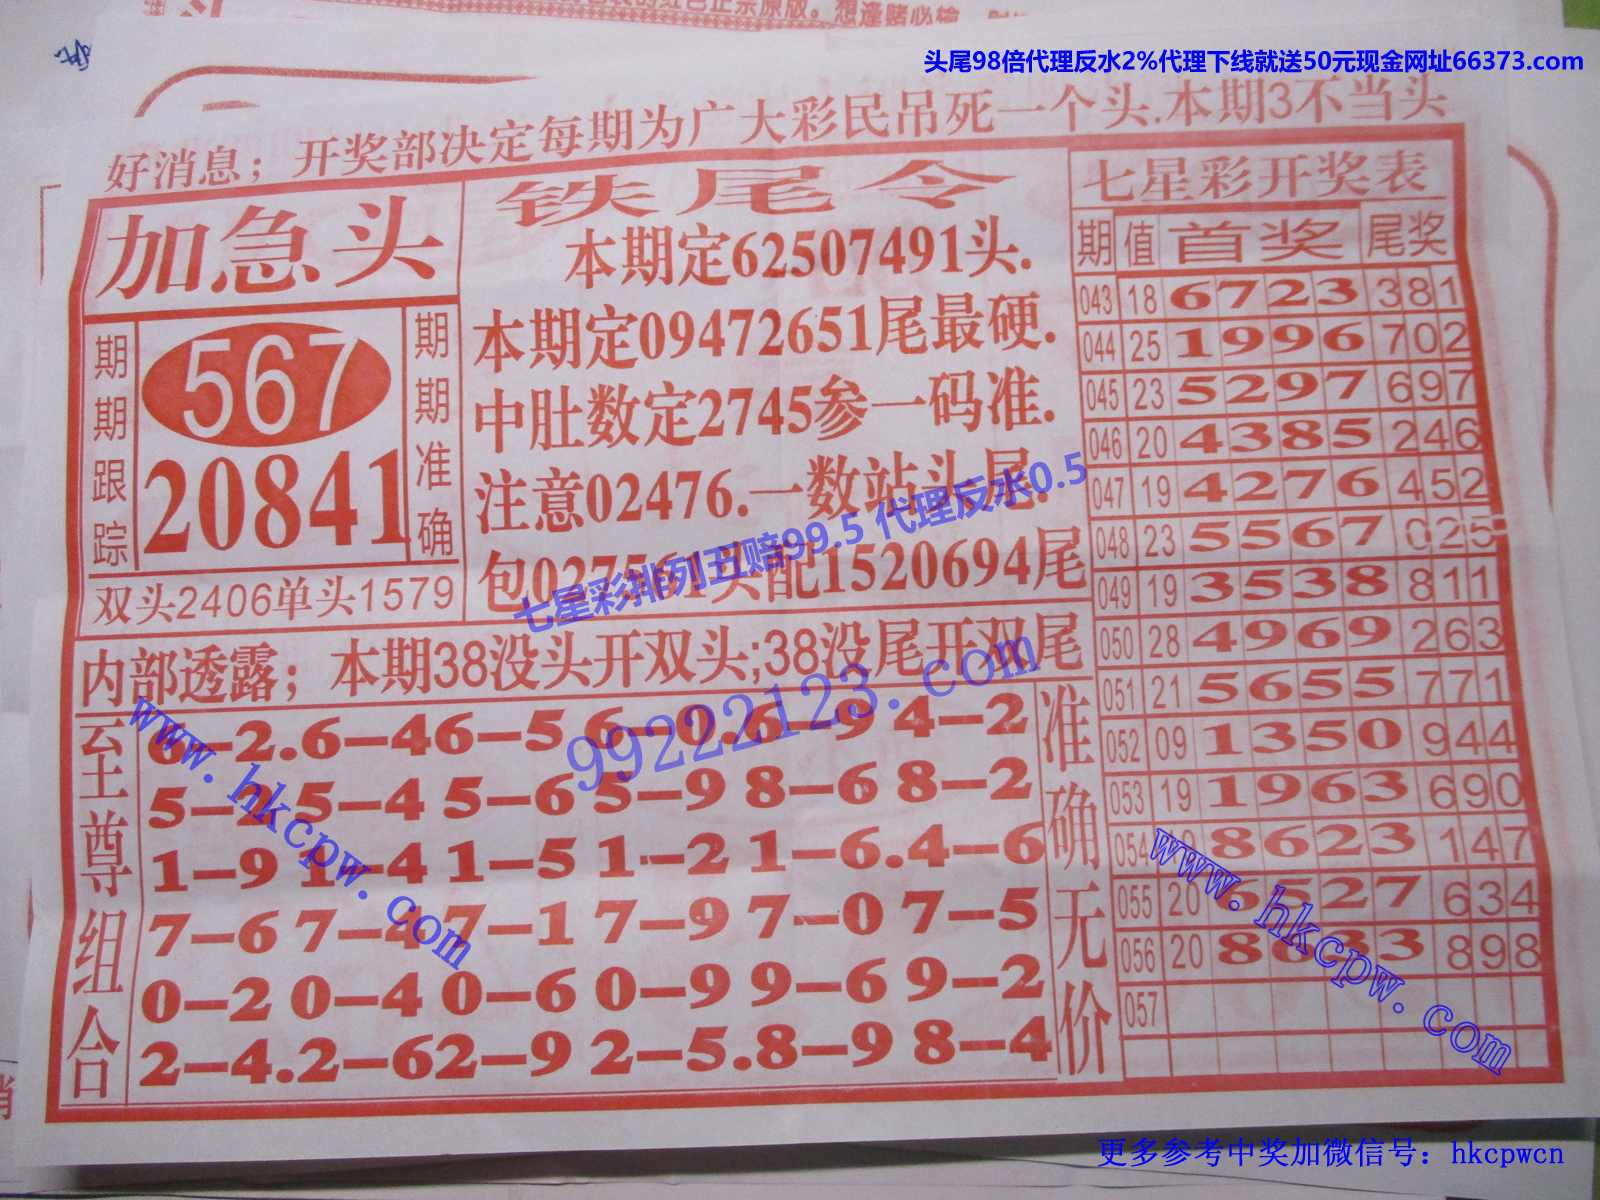 头尾98倍代理反水2%代理下线就送50元现金网址66373.com
好消息；开奖部决定每期为广大彩民吊死一个头.本期3不当头
加急头
期期跟踪
567
20841
期期准确
双头2406单头1579
铁尾令
本期定62507491头.
本期定09472651尾最硬.
中肚数定2745参一码准.
注意02476.一数站头尾.
包027561头配1520694尾
七星彩排列五赔99.5 代理反水0.5
内部透露；本期38没头开双头;38没尾开双尾
99222123.com
至尊组合
6–2.6–46–5 6–0.6–9 4–2
5–2 5–4 5–6 5–9 8–6 8–2
1–9 1–4 1–5 1–2 1–6.4–6
7–6 7–4 7–1 7–9 7–0 7–5
0–2 0–4 0–6 0–9 9–6 9–2
2–4.2–62–9 2–5.8–9 8–4
准确无价
www.hkcpw.com
七星彩开奖表
期 值 首奖 尾奖
043 18 6723 381
044 25 1996 702
045 23 5297 697
046 20 4385 246
047 19 4276 452
048 23 5567 025
049 19 3538 811
050 28 4969 263
051 21 5655 771
052 09 1350 944
053 19 1963 690
054 8623 147
055 20 6527 634
056 20 8633 898
057
www.hkcpw.com
更多参考中奖加微信号：hkcpwcn